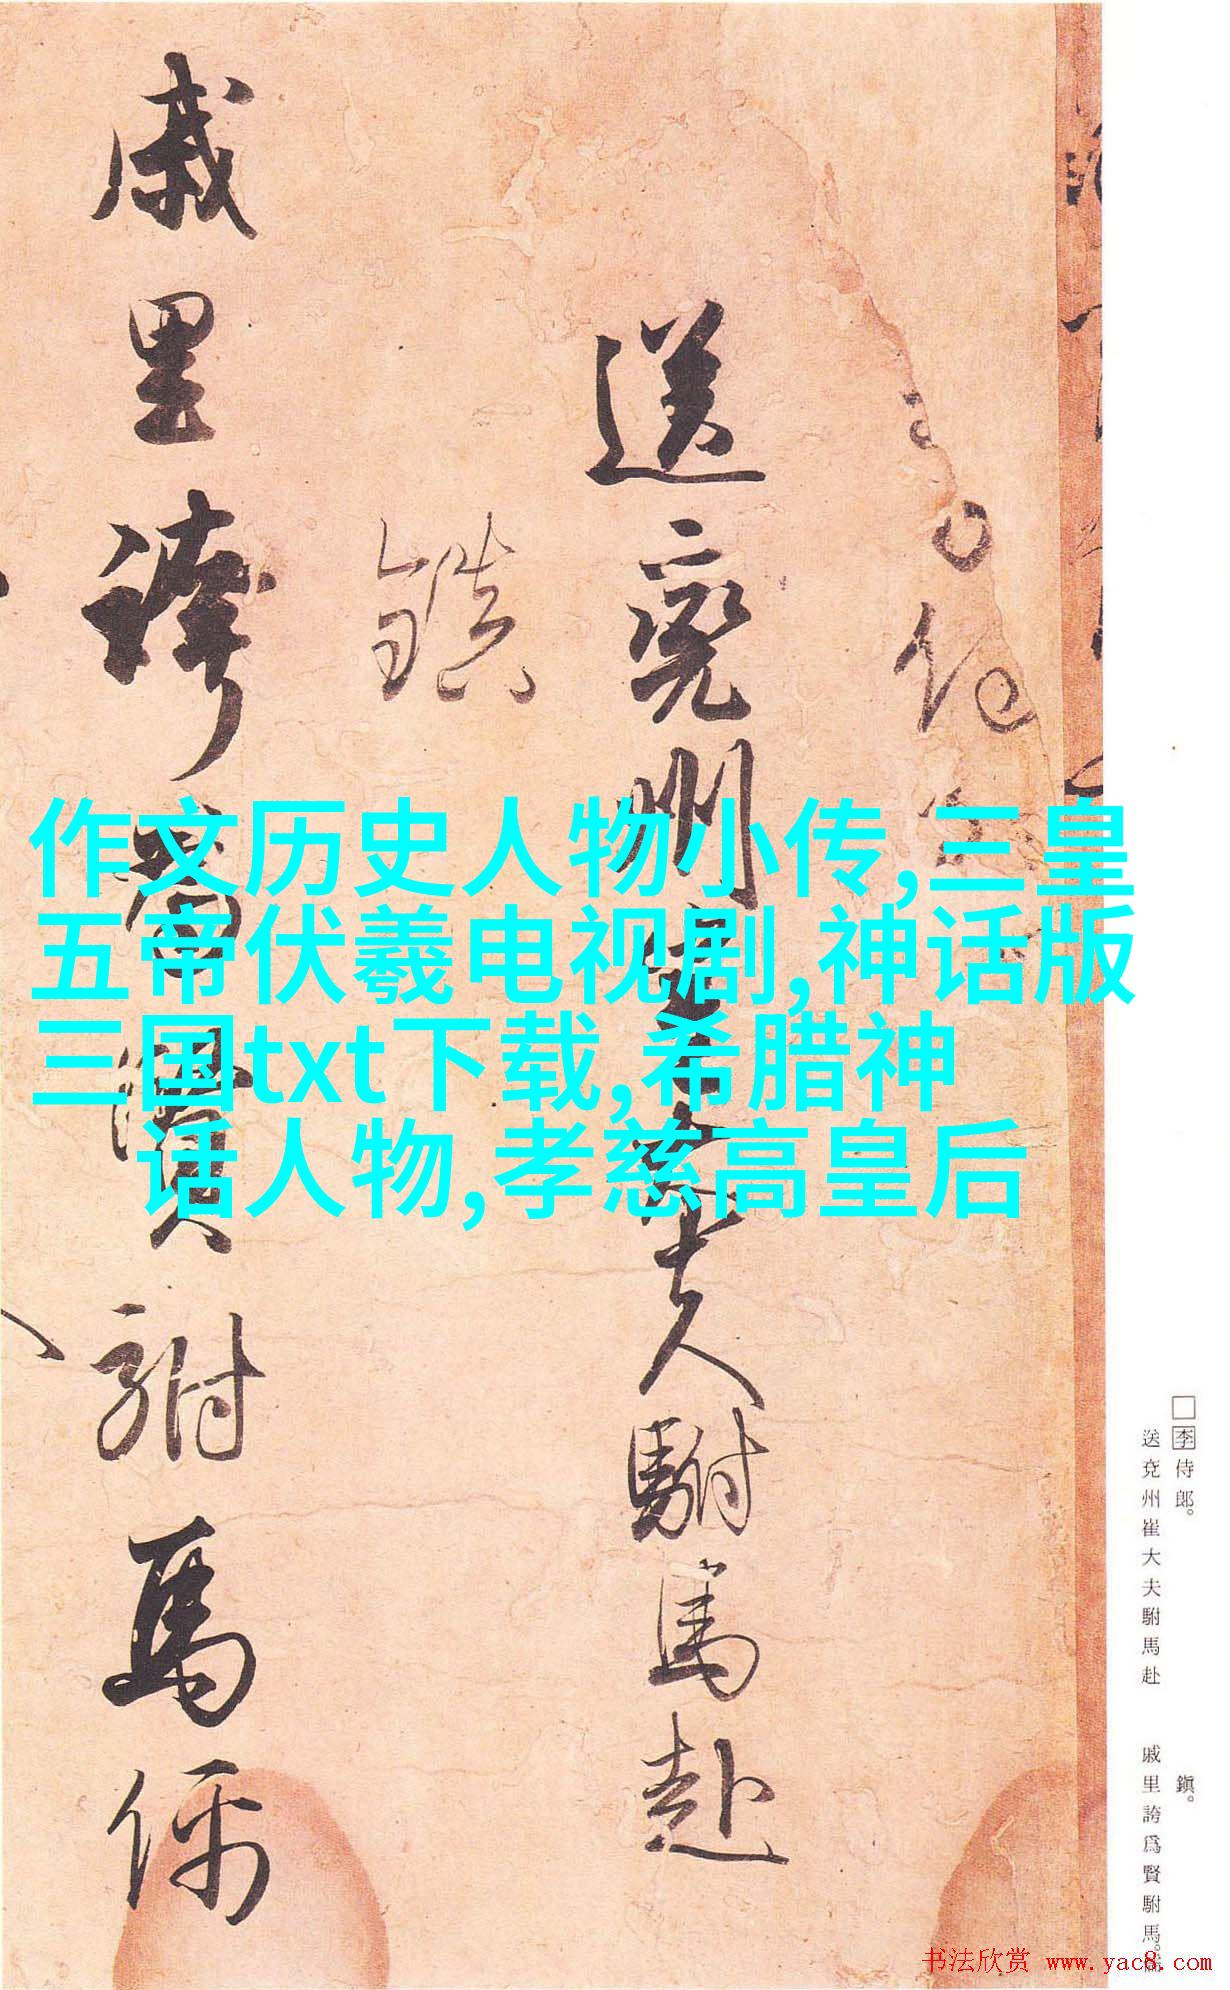 李侍郎。
送兗州崔大夫駙馬赴
鎮。
戚里誇爲賢駙馬。
送兗州崔大夫駙馬赴
鎮
戚里誇為賢駙馬儒
作文历史人物小传,三皇
五帝伏羲电视剧,神话版
三国txt下载,希腊神
话人物,孝慈高皇后
书法欣赏 www.yac8.com